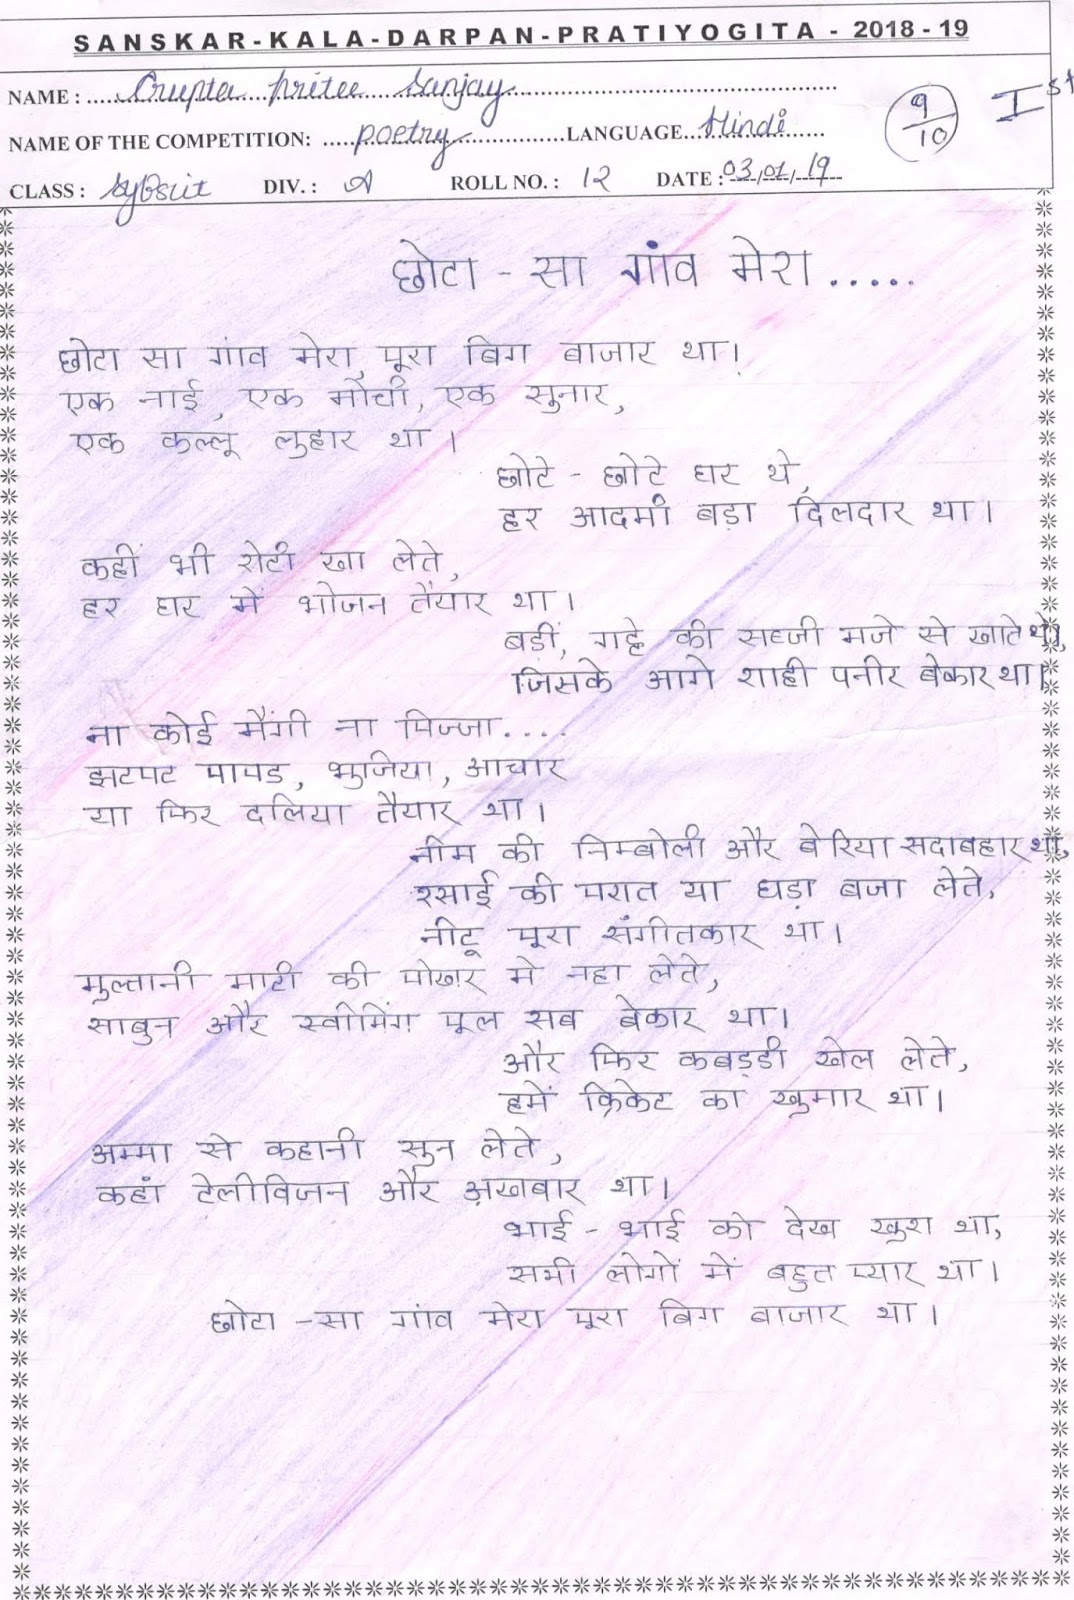 SANSKAR-KALA-DARPAN-PRATIYOGITA - 2018 - 19
NAME : Gupta Pritee Sanjay
9/10 Ist
NAME OF THE COMPETITION: poetry LANGUAGE Hindi
CLASS : SyBscit DIV. : A ROLL NO. : 12 DATE : 03/01/19
छोटा - सा गांव मेरा .....
छोटा सा गांव मेरा, पूरा बिग बाजार था।
एक नाई, एक मोची, एक सुनार,
एक कल्लू लुहार था।
छोटे - छोटे घर थे,
हर आदमी बड़ा दिलदार था।
कहीं भी रोटी खा लेते,
हर घर में भोजन तैयार था।
बड़ीं, गट्टे की सब्जी मजे से खाते थे,
जिसके आगे शाही पनीर बेकार था।
ना कोई मैंगी ना पिज्जा....
झटपट पापड, भुजिया, आचार
या फिर दलिया तैयार था।
नीम की निम्बोली और बेरिया सदाबहार था,
रसाई की परात या घड़ा बजा लेते,
नीटू पूरा संगीतकार था।
मुल्तानी माटी की पोखर मे नहा लेते,
साबुन और स्वीमिंग पूल सब बेकार था।
और फिर कबड्डी खेल लेते,
हमें क्रिकेट का खुमार था।
अम्मा से कहानी सुन लेते,
कहां टेलीविजन और अखबार था।
भाई - भाई को देख खुश था,
सभी लोगों में बहुत प्यार था।
छोटा - सा गांव मेरा पूरा बिग बाजार था।